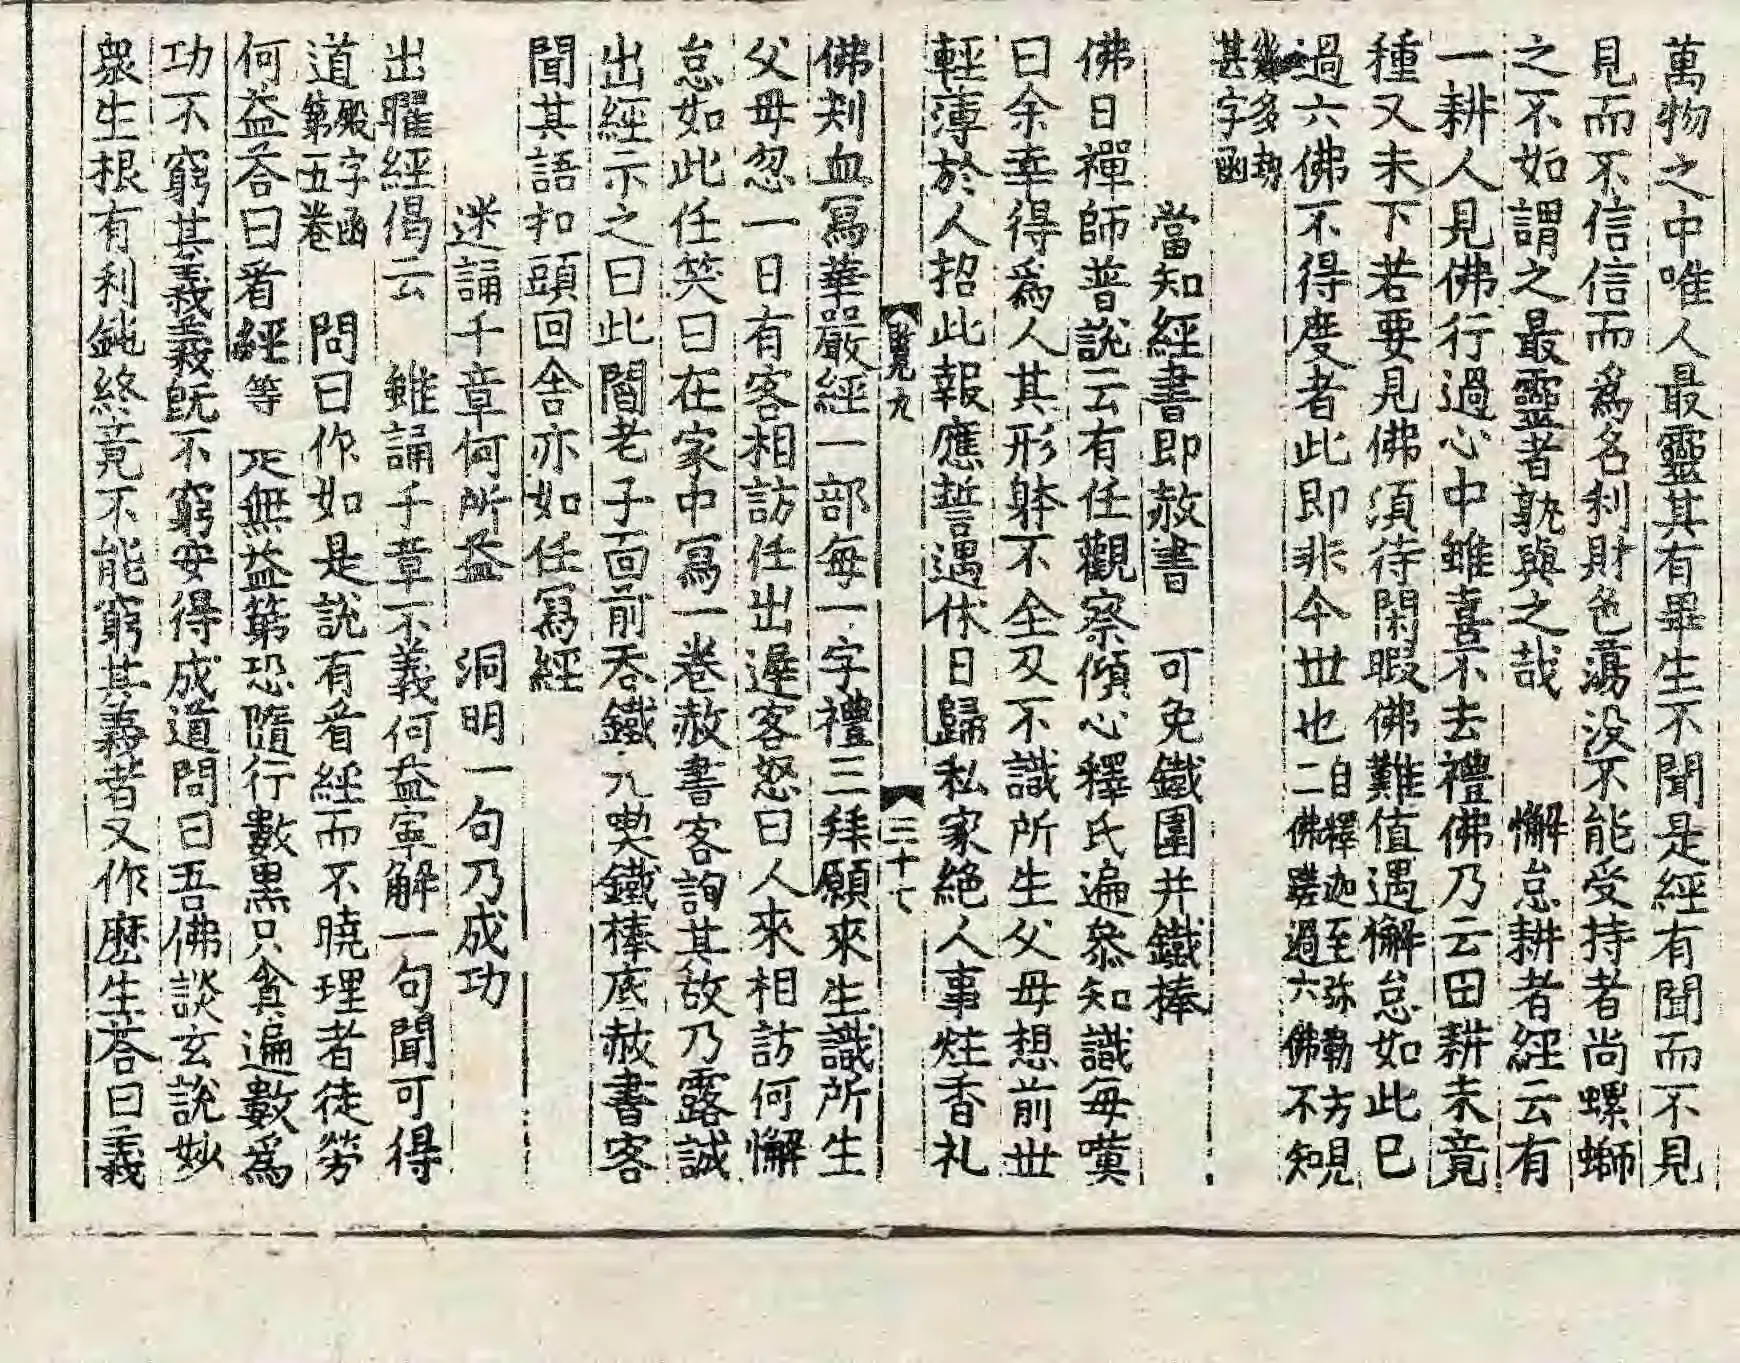 萬物之中唯人最靈其有畢生不聞是經有聞而不見
見而不信信而爲名利財色蕩没不能受持者尚螺螄
之不如謂之最靈者孰與之哉　懈怠耕者經云有
一耕人見佛行過心中雖喜不去禮佛乃云田耕未竟
種又未下若要見佛須待閑暇佛難值遇懈怠如此已
過六佛不得度者此即非今世也自釋迦至弥勒方見
二佛蹉過六佛不知
幾多劫
甚字函
當知經書即赦書　可免鐵圍并鐵棒
佛日禪師普說云有任觀察傾心釋氏遍叅知識每嘆
曰余幸得爲人其形躰不全又不識所生父母想前世
輕薄於人招此報應誓遇休日歸私家絶人事炷香礼
九
三十七
佛刺血冩華嚴經一部每一字禮三拜願來生識所生
父母忽一日有客相訪任出遲客怒曰人來相訪何懈
怠如此任笑曰在家中冩一卷赦書客詢其故乃露誠
出經示之曰此閻老子面前吞鐵丸喫鐵棒底赦書客
聞其語扣頭回舍亦如任冩經
迷誦千章何所益　洞明一句乃成功
出曜經偈云　雖誦千章不義何益寧解一句聞可得
道殿字函
第五卷　問曰作如是說有看經而不曉理者徒勞
何益荅曰看經等　無益第恐隨行數黑只貪遍數爲
功不窮其義義旣不窮安得成道問曰吾佛談玄說妙
衆生根有利鈍終竟不能窮其義者又作麽生荅曰義